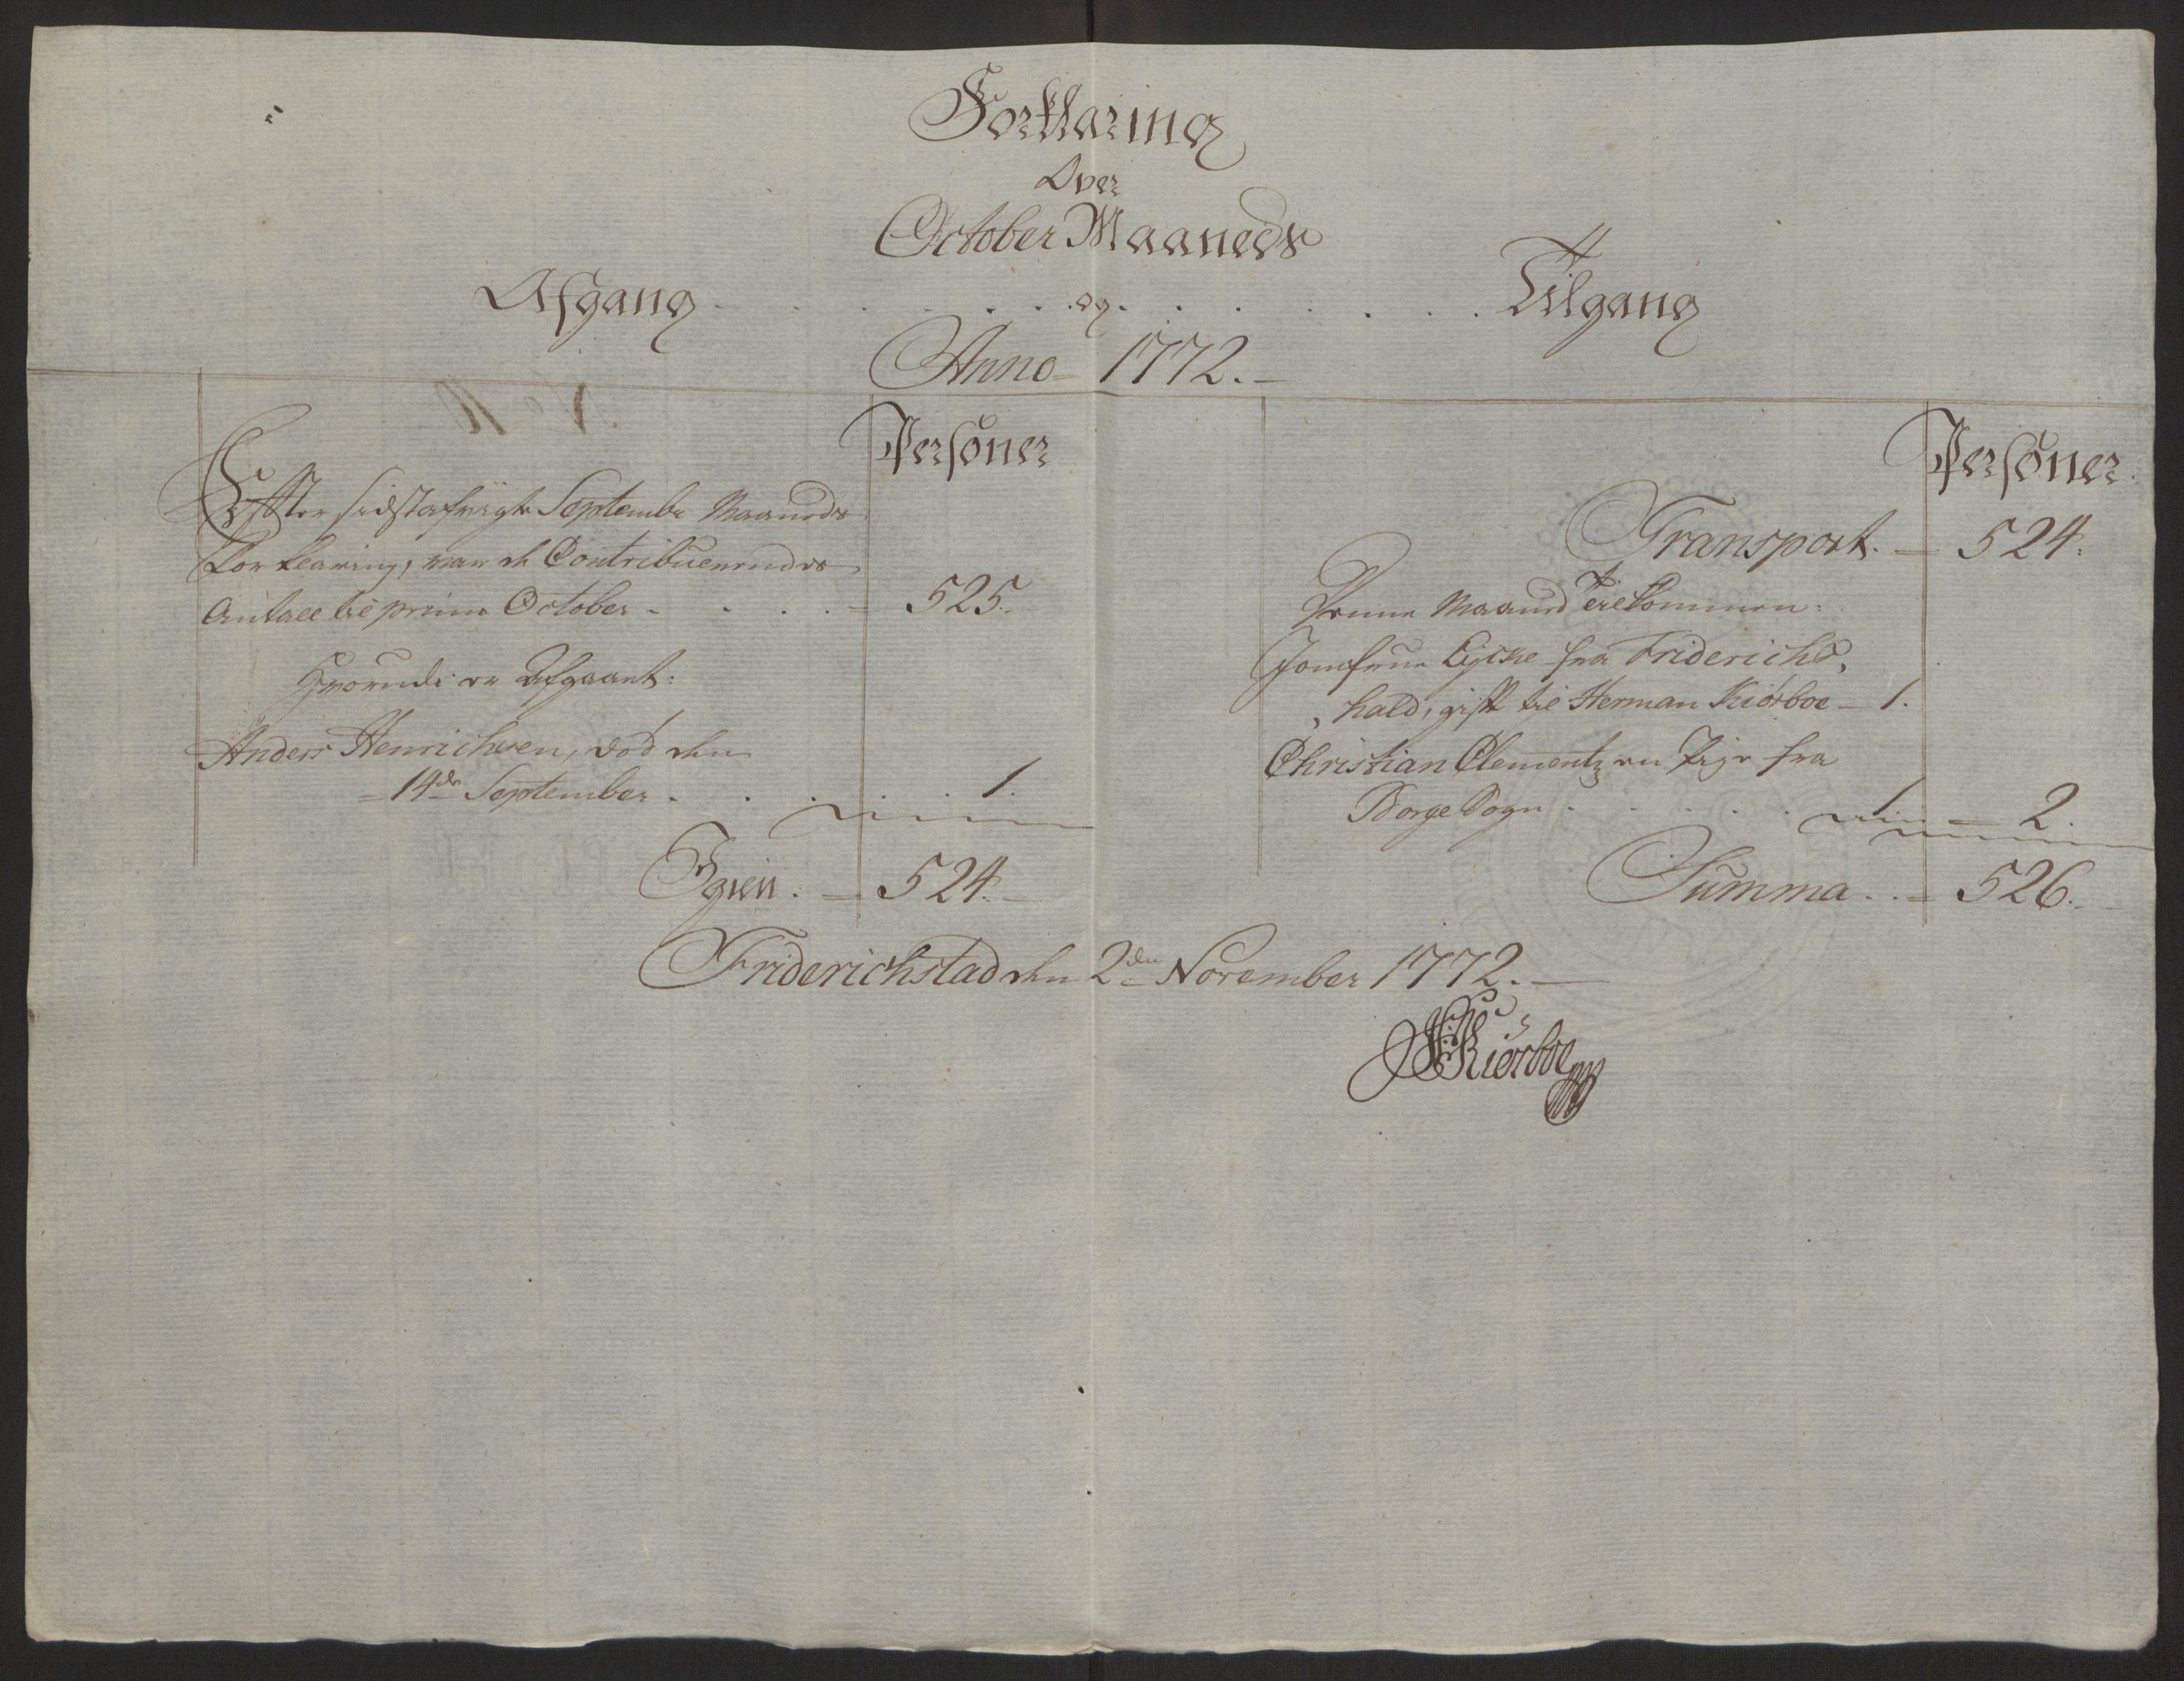 Forklaring
Over
October Maaneds
Afgang . . . . . . og . . . . . . Tilgang
Anno 1772.
Personer
Effter sidstafvigte Septembr Maaneds
Forklaring, var de Contribuerendes
Antall til primo October - . . . = 525.
Hvorudi er Afgaaet:
Anders Henrichsen, død den
14de September . . . . . 1.
Igien. = 524.
Personer.
Transport. = 524.
Denne Maaned tilkommen:
Jomfrue Lycke fra Friderichs„
„hald, gift til Herman Kiørboe - 1.
Christian Clementz en Pige fra
Borge Sogn . . . . . 1. = 2.
Summa . . = 526.
Friderichstad den 2den November 1772.
Kiørboe